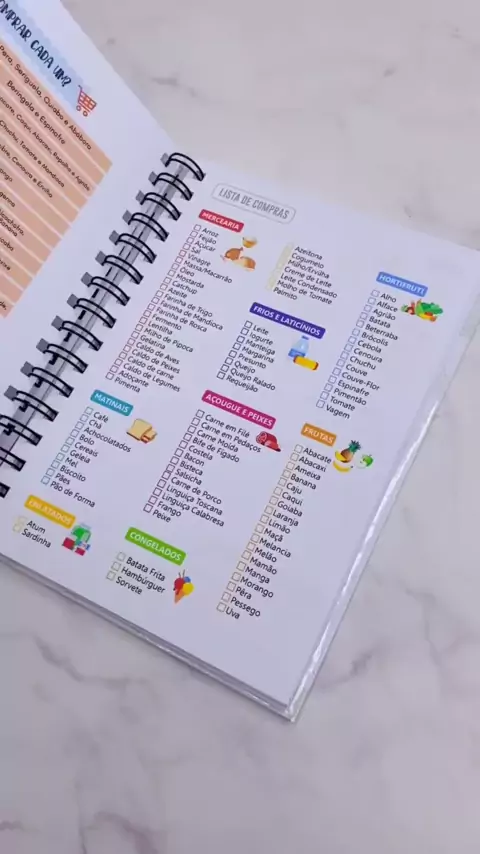 COMPRAR CADA UM?
Pera, Seriguela, Quiabo e Abóbora
Beringela e Espinafre
LISTA DE COMPRAS
MERCEARIA
Arroz
Feijão
Açúcar
Sal
Vinagre
Massa/Macarrão
Óleo
Mostarda
Catchup
Azeite
Farinha de Trigo
Farinha de Mandioca
Farinha de Rosca
Fermento
Lentilha
Milho de Pipoca
Gelatina
Caldo de Aves
Caldo de Peixes
Caldo de carne
Caldo de Legumes
Adoçante
Pimenta
Azeitona
Cogumelo
Milho/Ervilha
Creme de Leite
Leite Condensado
Molho de Tomate
Palmito
FRIOS E LATICÍNIOS
Leite
Iogurte
Manteiga
Margarina
Presunto
Queijo
Queijo Ralado
Requeijão
HORTIFRUTI
Alho
Alface
Agrião
Batata
Beterraba
Brócolis
Cebola
Cenoura
Chuchu
Couve
Couve-Flor
Espinafre
Pimentão
Tomate
Vagem
MATINAIS
Café
Chá
Achocolatados
Bolo
Cereais
Geleia
Mel
Biscoito
Pães
Pão de Forma
AÇOUGUE E PEIXES
Carne em Filé
Carne em Pedaços
Carne Moída
Bife de Fígado
Costela
Bacon
Bisteca
Salsicha
Carne de Porco
Linguiça Toscana
Linguiça Calabresa
Frango
Peixe
FRUTAS
Abacate
Abacaxi
Ameixa
Banana
Caju
Caqui
Goiaba
Laranja
Limão
Maçã
Melancia
Melão
Mamão
Manga
Morango
Pêra
Pessego
Uva
ENLATADOS
Atum
Sardinha
CONGELADOS
Batata Frita
Hambúrguer
Sorvete